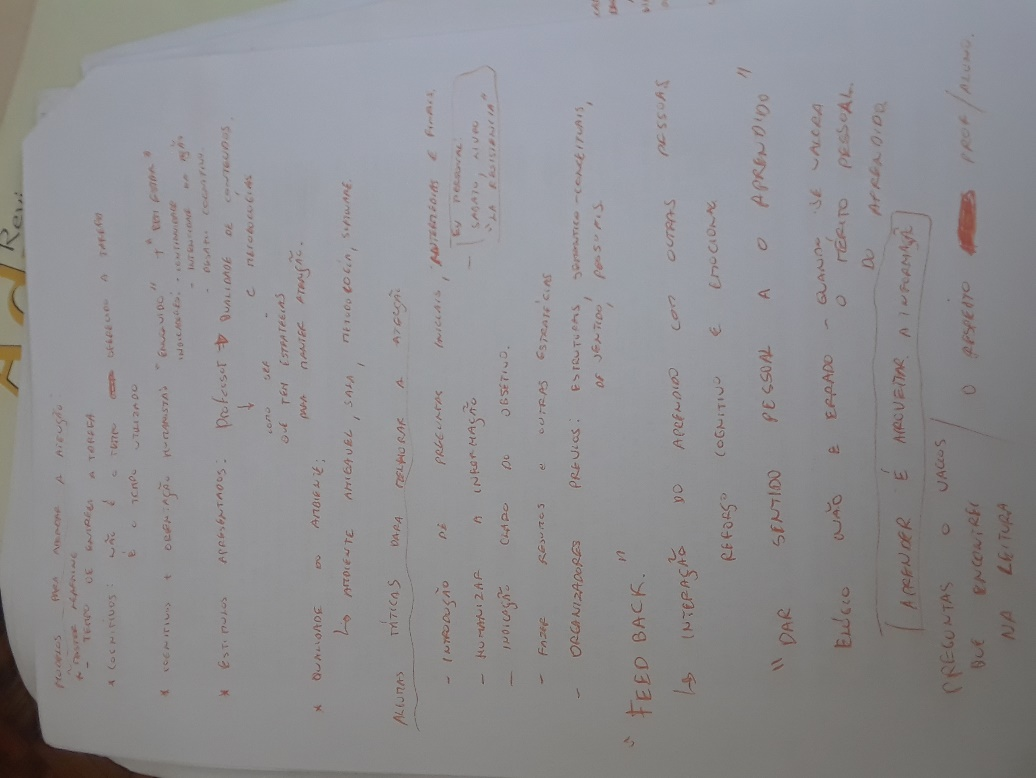 MODELOS PARA MANTER A ATENÇÃO:
* "MASTER LEARNING
- TEMPO DE ENTREGA A TAREFA
* COGNITIVOS: NÃO É O TEMPO OFERECIDO A TAREFA
É O TEMPO UTILIZADO
* COGNITIVOS + ORIENTAÇÃO HUMANISTAS "ENVOLVIDO" + "BEM ESTAR"
INDICADORES: - CONTINUIDADE
- INTENSIDADE DA AÇÃO
- DESAFIO COGNITIVO.
* ESTIMULOS APRESENTADOS: PROFESSOR → QUALIDADE DE CONTEUDOS.
C METODOLOGIAS
COMO SER
QUE TEM ESTRATEGIAS
PARA MANTER ATENÇÃO.
* QUALIDADE DO AMBIENTE:
↳ AMBIENTE AMIGAVEL, SALA, METODOLOGIA, SOFTWARE.
ALGUMAS TÁTICAS PARA MELHORAR A ATENÇÃO
- INTRODUÇÃO DE PREGUNTAS INICIAIS, INTERMEDIAS E FINAIS,
- HUMANIZAR A INFORMAÇÃO
- "EU PESSOAL
"NA EXISTENCIA"
- INDICAÇÃO CLARO DO OBJETIVO.
- FAZER RESUMOS E OUTRAS ESTRATÉGIAS
- ORGANIZADORES PREVIOS: ESTRUTURAS SEMANTICO-CONCEITUAIS,
DE SENTIDO, PESSOAIS.
" FEED BACK. "
↳ INTERAÇÃO DO APRENDIDO COM OUTRAS PESSOAS
REFORÇO COGNITIVO E EMOCIONAL
" DAR SENTIDO PESSOAL A O APRENDIDO "
ELOGIO NÃO É ERRADO - QUANDO SE VALORA
O MÉRITO PESSOAL
DO APRENDIDO
APRENDER É APROVEITAR A INFORMAÇÃO
PREGUNTAS O VAGOS / O RESPEITO PROF/ALUNO.
QUE ENCONTREI
NA LEITURA